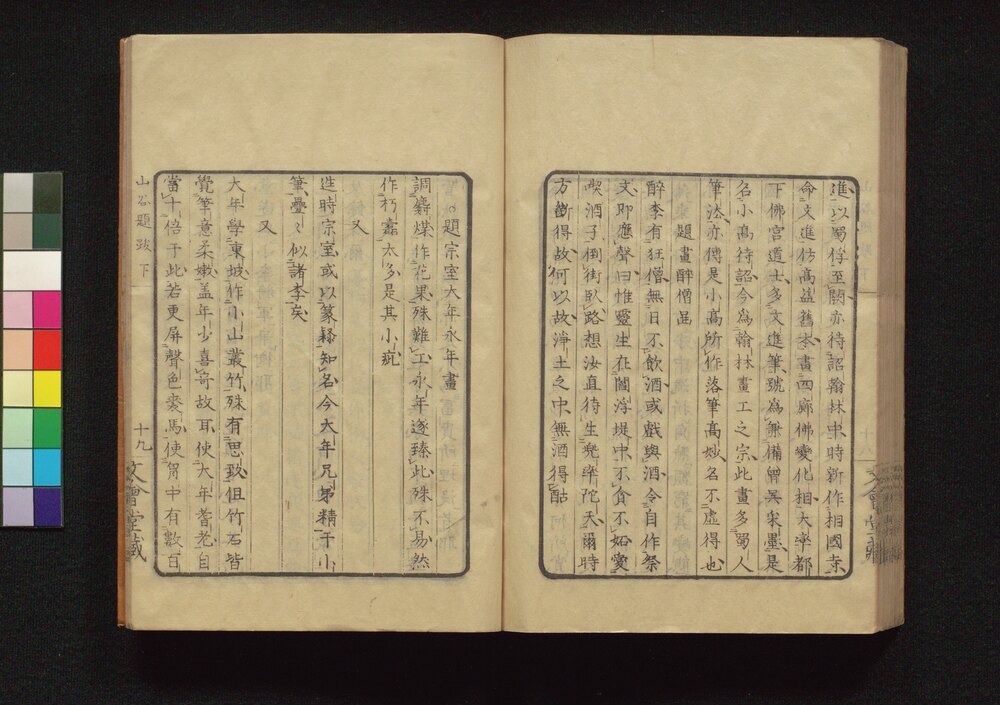 進以蜀俘至闕亦待詔翰林中時新作相國寺
命文進仿高益舊本畫四廊佛變化相大率都
下佛宮道士多文進筆號為兼備曹吳采墨是
名小高待詔今為翰林畫工之宗此畫多蜀人
筆法亦傳是小高所作落筆高妙名不虛得也
題畫醉僧啚
醉李有狂僧無日不飲酒或戲與酒令自作祭
文即應聲曰惟靈生在閻浮堤中不貪不妬愛
喫酒子倒街臥路想汝直待生兜率陀天爾時
方斷得故何以故淨土之中無酒得酤
題宗室大年永年畫
調麝煤作花果殊難工永年遂臻此殊不易然
作朽蠹太多是其小疵
又
迨時宗室或以篆籀知名今大年兄弟精于小
筆疊〻似諸李矣
又
大年學東坡作小山叢竹殊有思致但竹石皆
覺筆意柔嫩蓋年少喜奇故耳使大年耆老自
當十倍于此若更屏聲色裘馬使胷中有數百
山谷題跋 下
十九
文會堂藏